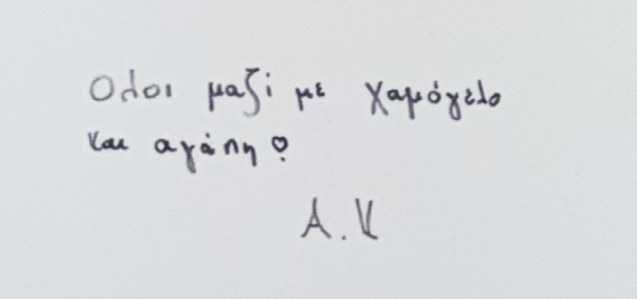 Ολοι μαζί με χαμόγελο
και αγάπη♡.
Α.Κ